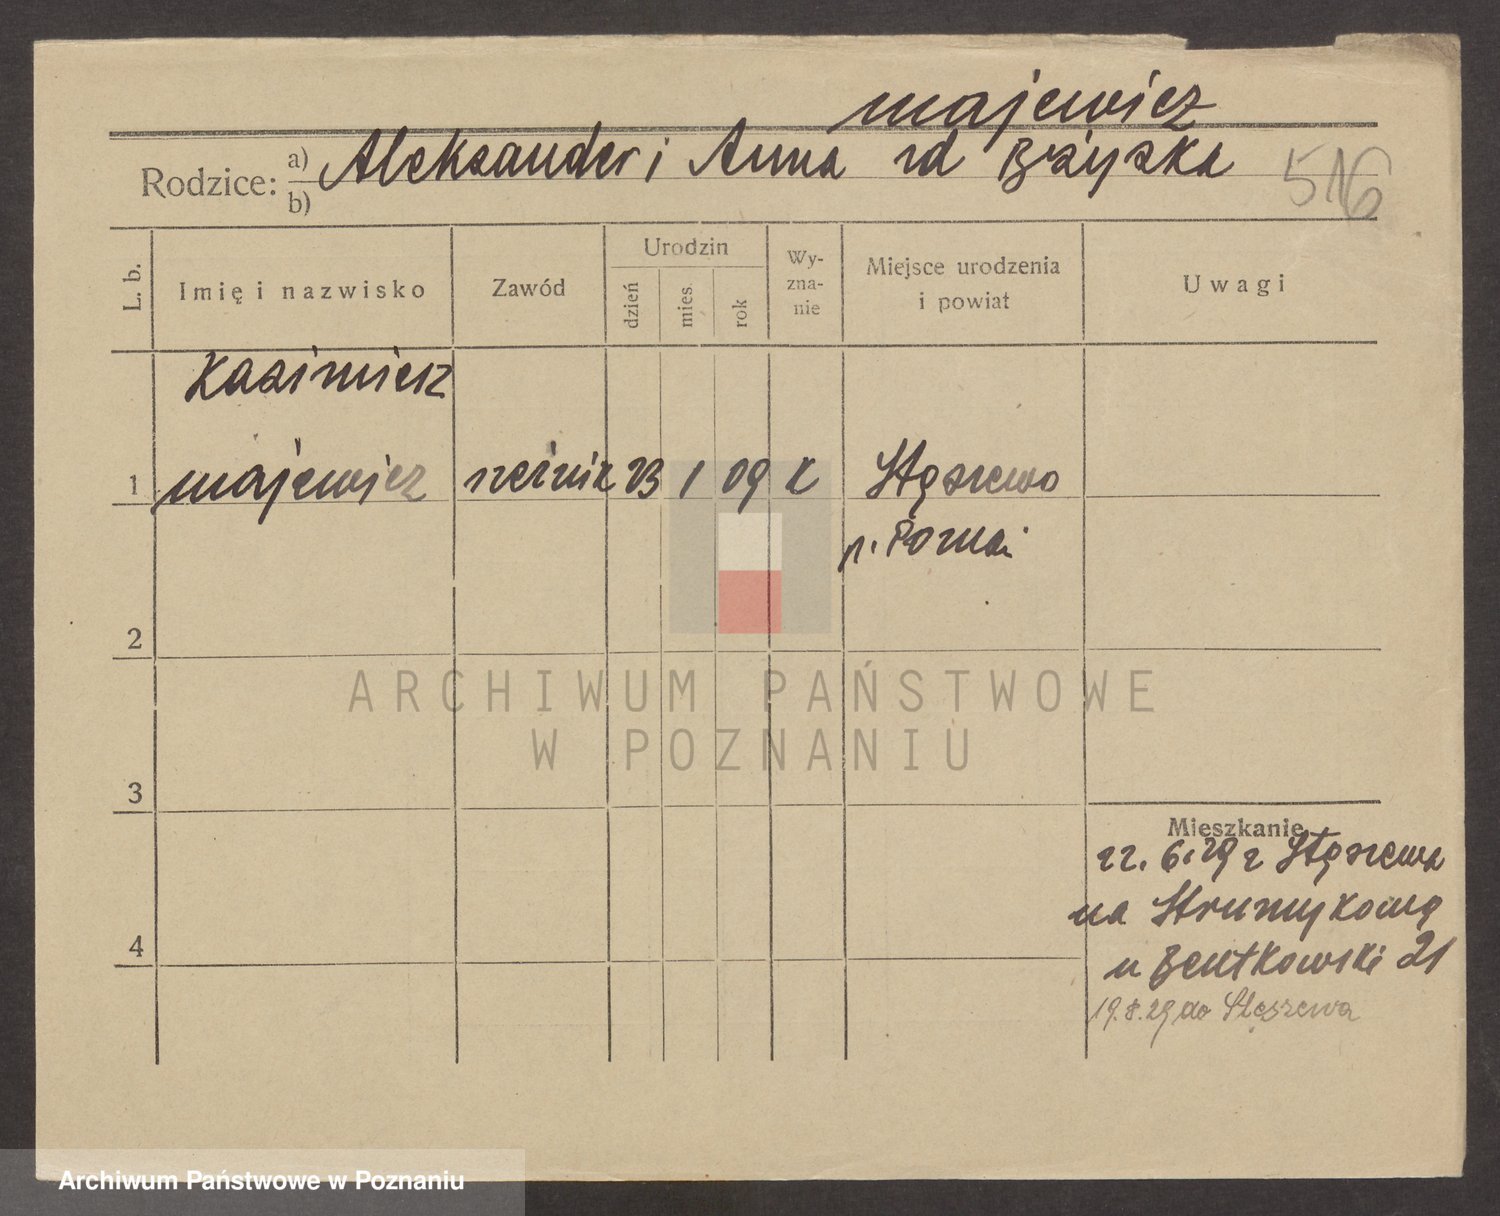 Majewicz
Rodzice: a) Aleksander i Anna
b)
516
L. b.
Imię i nazwisko
Zawód
Urodzin
dzień
mies.
rok
Wy-
zna-
nie
Miejsce urodzenia
i powiat
Uwagi
Kazimierz
1 Majewicz rzeźnik 23 1 09 k Stęszewo
p. Poznań
2
3
4
Mieszkanie
22. 6. 29 z Stęszewa
na Strumykową
u Bentkowski 21
19.8.29 do Stęszewa
ARCHIWUM PAŃSTWOWE
W POZNANIU
Archiwum Państwowe w Poznaniu